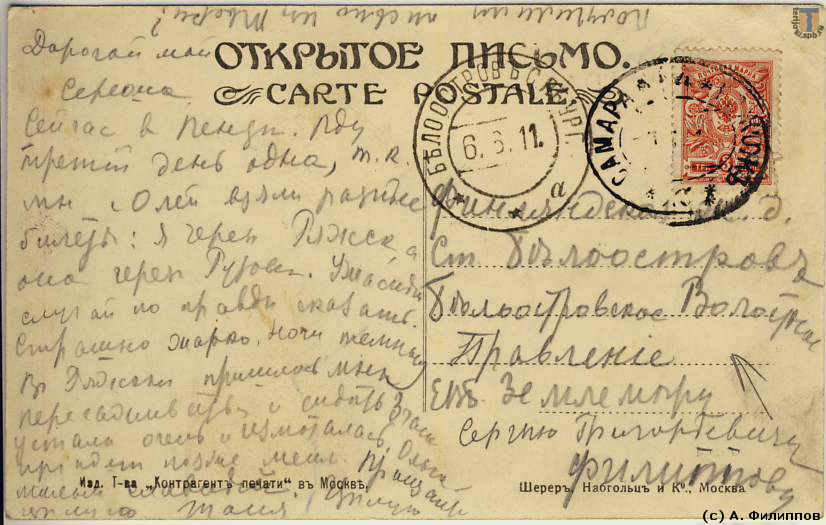 Получили ли письмо из Москвы?
ОТКРЫТОЕ ПИСЬМО.
CARTE POSTALE
Дорогой мой
Сережа
Сейчас в Пензе. Еду
третий день одна, т.к.
мы с Олей взяли разные
билеты: я через Ряжск, а
она через Рузаевк.
случай по правде сказать.
Страшно жарко, ночи темные
В Ряжске пришлось мне
пересаживаться и сидеть 3 часа
устала очень и измоталась. Ольга
приедет позже меня. Прощайте
милый целую
целую Таня
БѢЛООСТРОВЪ С.ПЕТУРГ.
6.6.11.
а
САМАРА
Финляндская ж. д.
Ст. Бѣлоостровъ
Бѣлоостровское Волостное
Правленіе
ЕВБ Землемѣру
Сергѣю Григорьевичу
Филиппову
Изд. Т-ва „Контрагентъ печати“ въ Москвѣ.
Шереръ, Набгольцъ и К°., Москва
(c) А. Филиппов